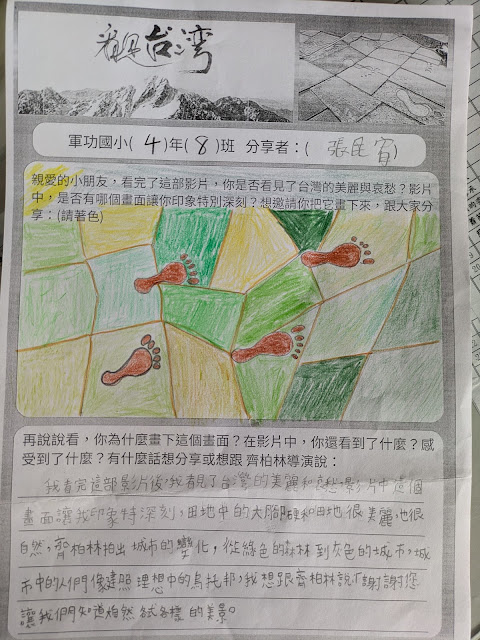 看見台灣
軍功國小(4)年(8)班 分享者：(張 宥)
親愛的小朋友，看完了這部影片，你是否看見了台灣的美麗與哀愁？影片
中，是否有哪個畫面讓你印象特別深刻？想邀請你把它畫下來，跟大家分
享：(請著色)
再說說看，你為什麼畫下這個畫面？在影片中，你還看到了什麼？感
受到了什麼？有什麼話想分享或想跟 齊柏林導演說：
我看完這部影片後，我看見了台灣的美麗和哀愁，影片中這個
畫面讓我印象特深刻，田地中的大腳 和田地很美麗，也很
自然，齊柏林拍出城市的變化，從綠色的森林到灰色的城市，城
市中的人們像建照理想中的烏托邦，我想跟齊柏林說「謝謝您
讓我們知道 然各式各樣的美景。